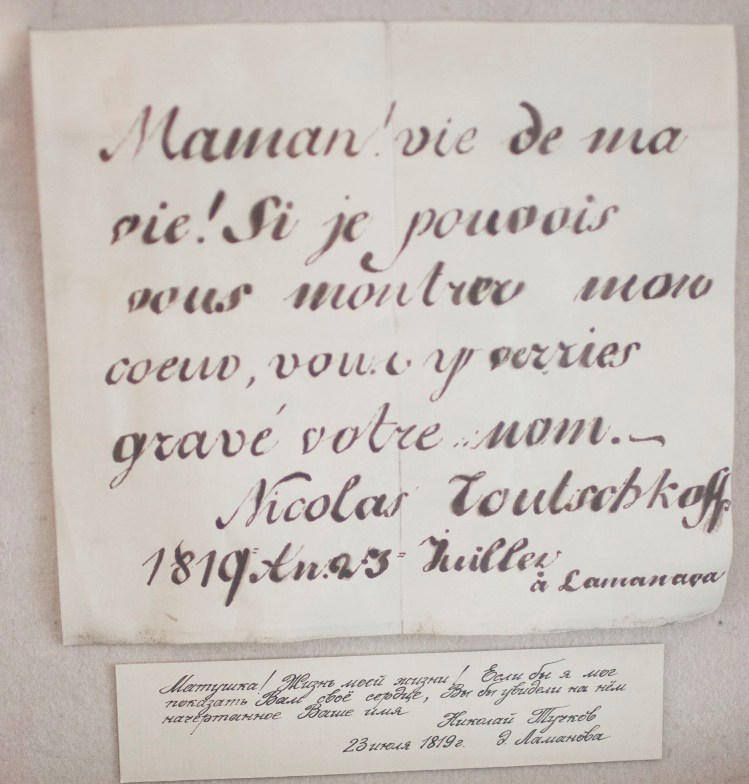 Maman! vie de ma
vie! Si je pouvois
vous montrer mon
coeur, vous y verries
gravé votre nom.
Nicolas Toutschkoff
1819 An: 23 Juillet
à Lamanava
Матушка! Жизнь моей жизни! Если бы я мог
показать Вам своё сердце, Вы бы увидели на нём
начертанное Ваше имя
Николай Тучков
23 июля 1819 г. д. Ламанова